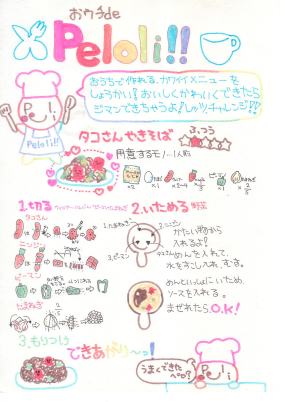 おウチde
Peloli!!
おうちで作れる、カワイイメニューを
しょうかい！おいしくかわいくできたら
ジマンできちゃうよ！レッツ、チャレンジ!!
Peloli!!
タコさんやきそば
ふつう
用意するモノ…1人前
×2
×1
×1
1.切る
タコさん
ニンジン
ピーマン
たまねぎ
2.いためる
野菜
1.たまねぎ
2.ニンジン
3.ピーマン
かたい物から
入れるよ？
めんを入れて、
水をすこし入れ、むす。
めんといっしょにいため、
ソースを入れる。
まぜれたらO.K!
3.もりつけ
できあがり〜っ!
うまくできた